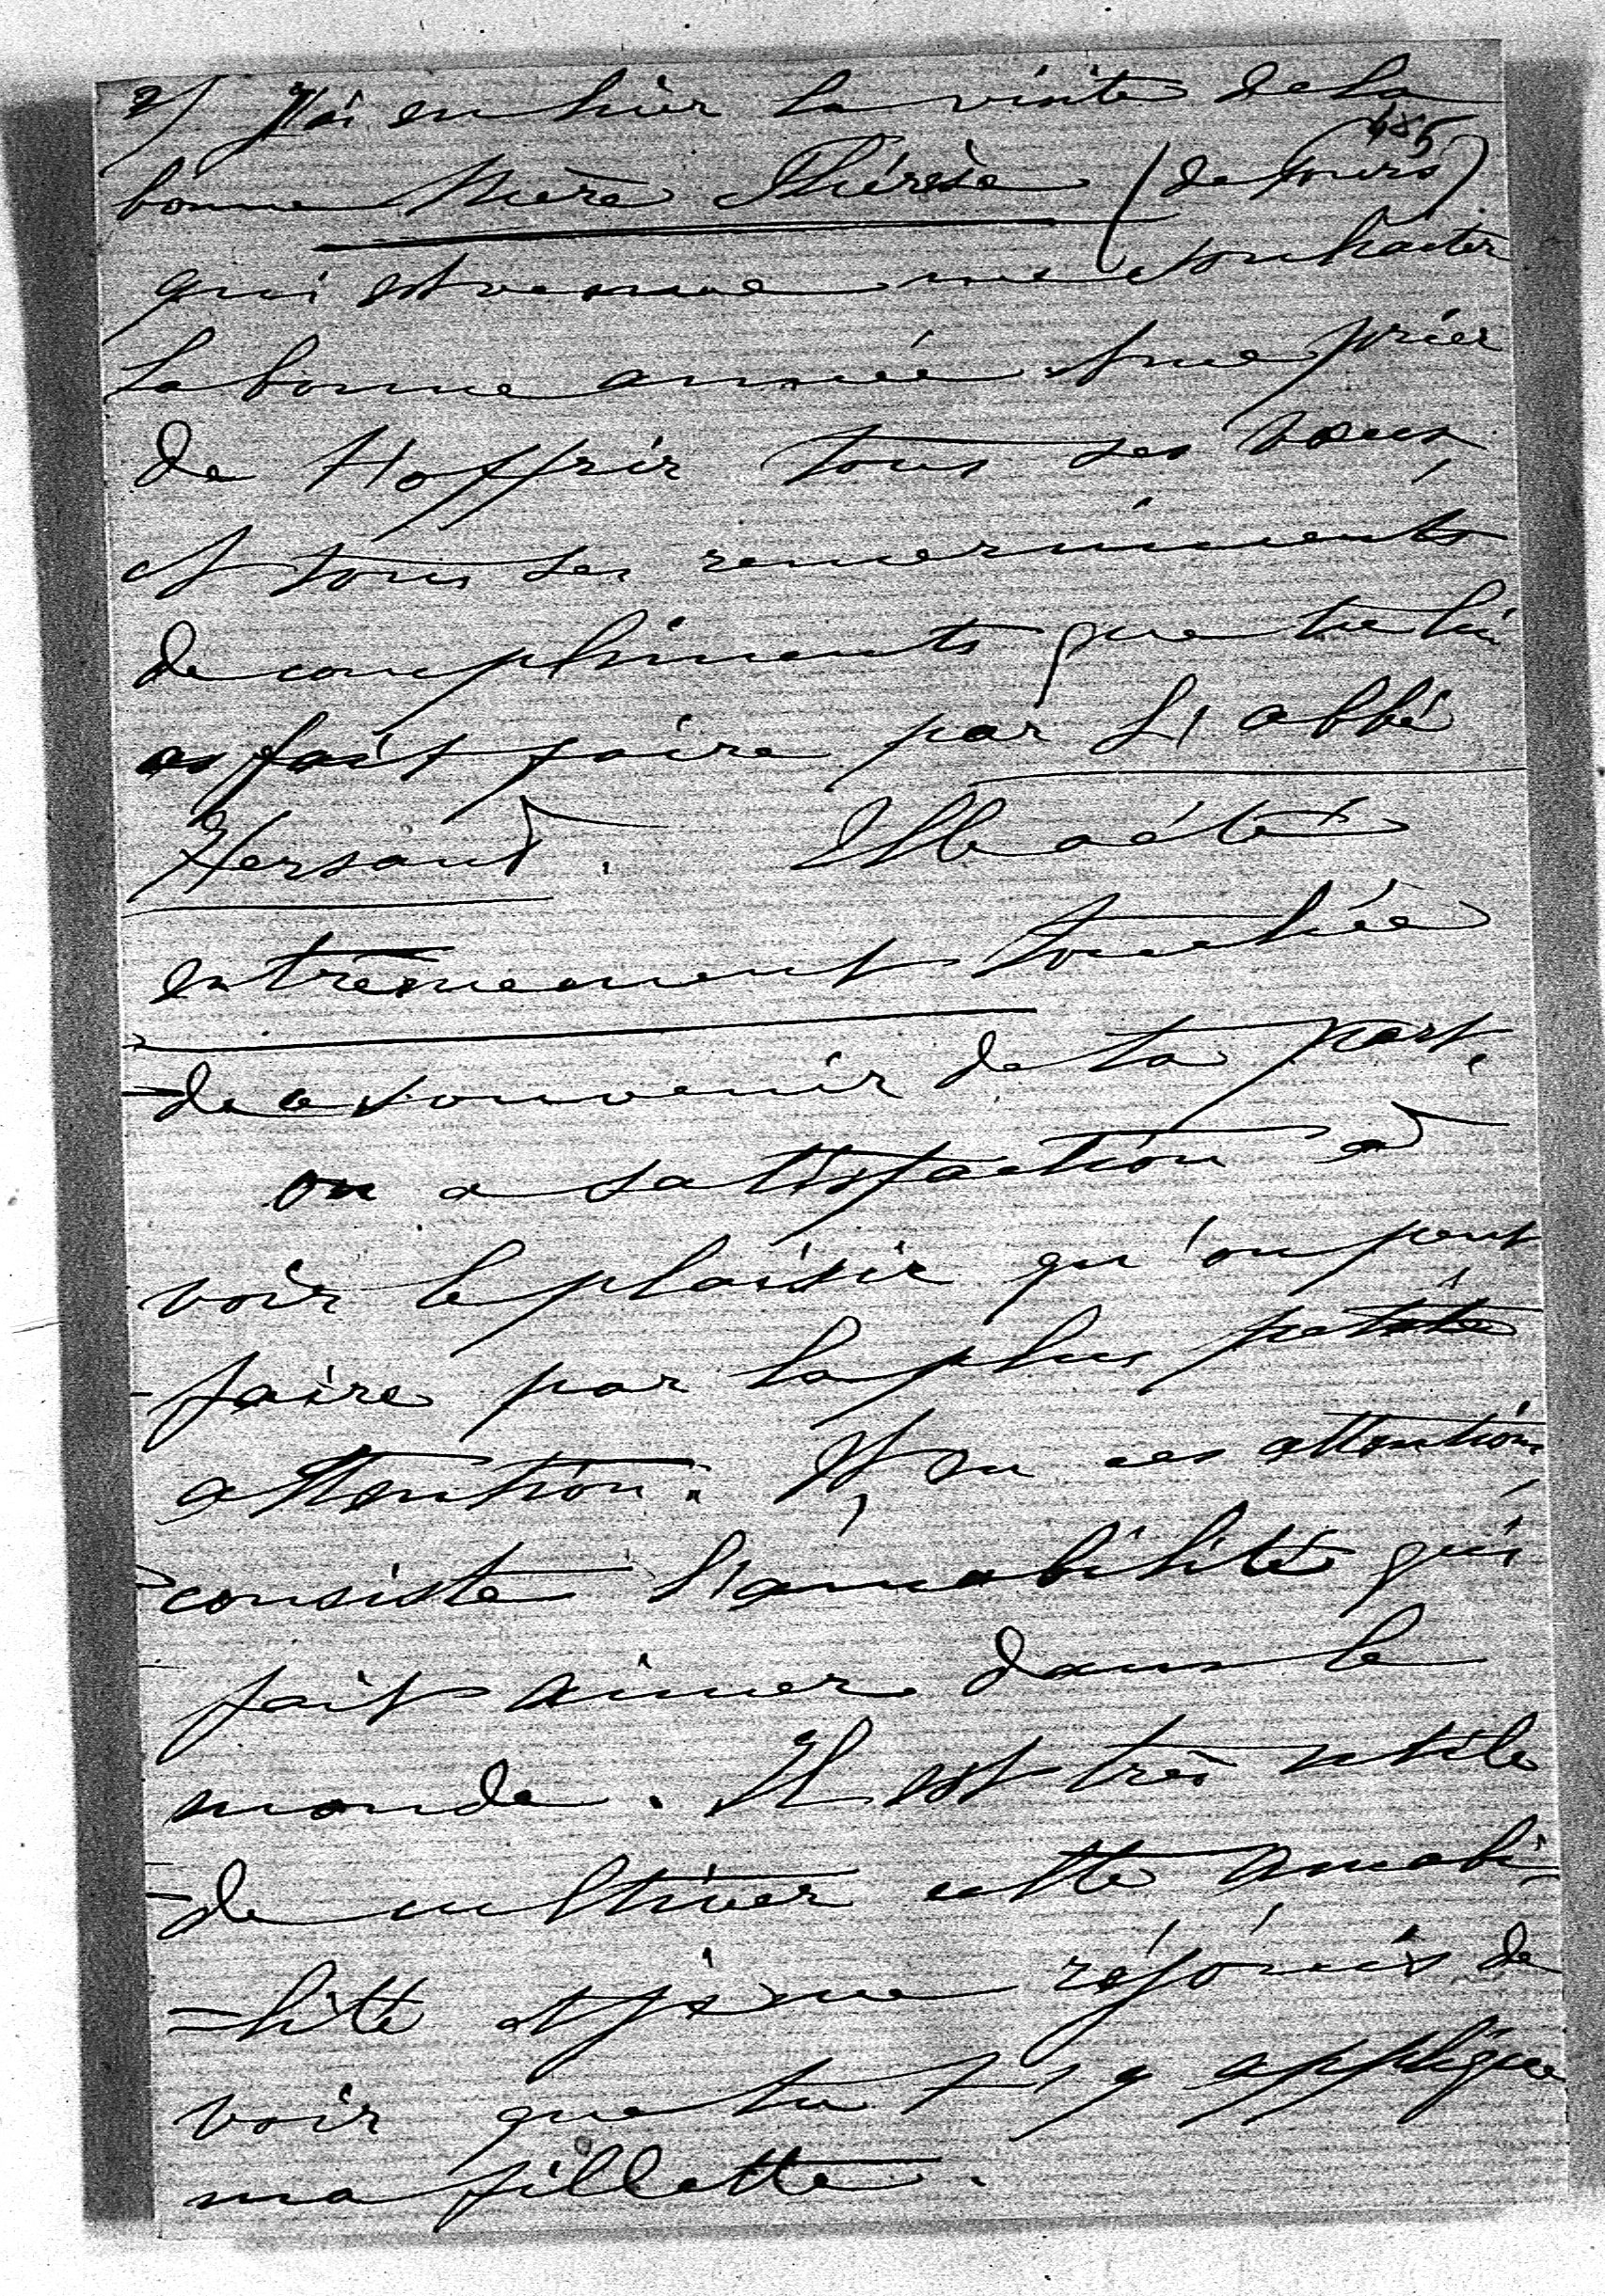 2/ J'ai eu hier la visite de la
485
bonne Mère Thérèse (de Tours)
qui est venue me souhaiter
la bonne année & me prier
de t'offrir tous ses vœux,
et tous ses remerciments
de compliments que tu lui
as fait faire par l'abbé
Hersant. Elle a été
extrêmement touchée
de ce souvenir de ta part.
on a satisfaction à
voir le plaisir qu'on peut
faire par la plus petite
attention. Et en ces attentions,
consiste l'amabilité qui
fait aimer dans le
monde. Il est très utile
de cultiver cette amabi-
-lité et je me réjouis de
voir que tu t'y applique
ma fillette.